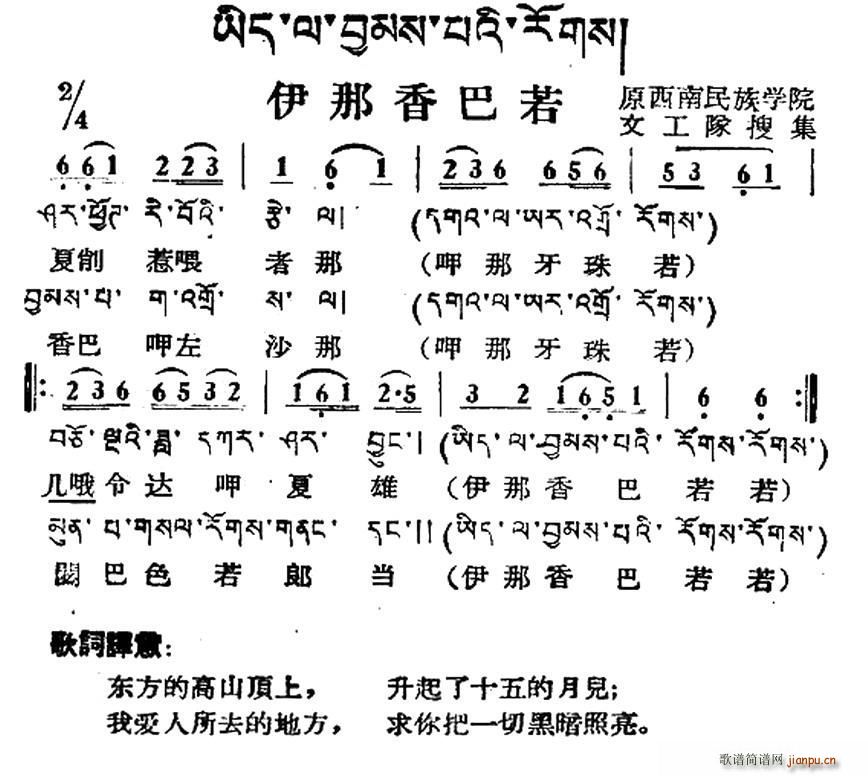 ཡིད་ལ་བྱམས་པའི་རོགས།
2/4 伊那香巴若 原西南民族学院
文工隊搜集
6 6 1 2 2 3 | 1 6 1 | 2 3 6 6 5 6 | 5 3 6 1 |
ཤར་ཕྱོད་རི་བོའི་ རྩེ་ལ། (དགའ་ལ་ཡར་འགྲོ་རོགས་)
夏削 惹喂 者那 (呷那牙珠若)
བྱམས་པ་ག་འགྲོ་ས་ལ། (དགའ་ལ་ཡར་འགྲོ་རོགས་)
香巴 呷左 沙那 (呷那牙珠若)
‖: 2 3 6 6 5 3 2 | 1 6 1 2·5 | 3 2 1 6 5 1 | 6 6 :‖
བཅོ་ལྔའི་ཟླ་དཀར་ཤར་བྱུང་། (ཡིད་ལ་བྱམས་པའི་རོགས་རོགས་)
几哦令达呷夏雄 (伊那香巴若若)
མུན་པ་གསལ་རོགས་གནང་དང་།། (ཡིད་ལ་བྱམས་པའི་རོགས་རོགས་)
巴色若郎当 (伊那香巴若若)
歌詞譯意:
东方的高山頂上， 升起了十五的月兒;
我爱人所去的地方， 求你把一切黑暗照亮。
歌谱简谱网 jianpu.cn